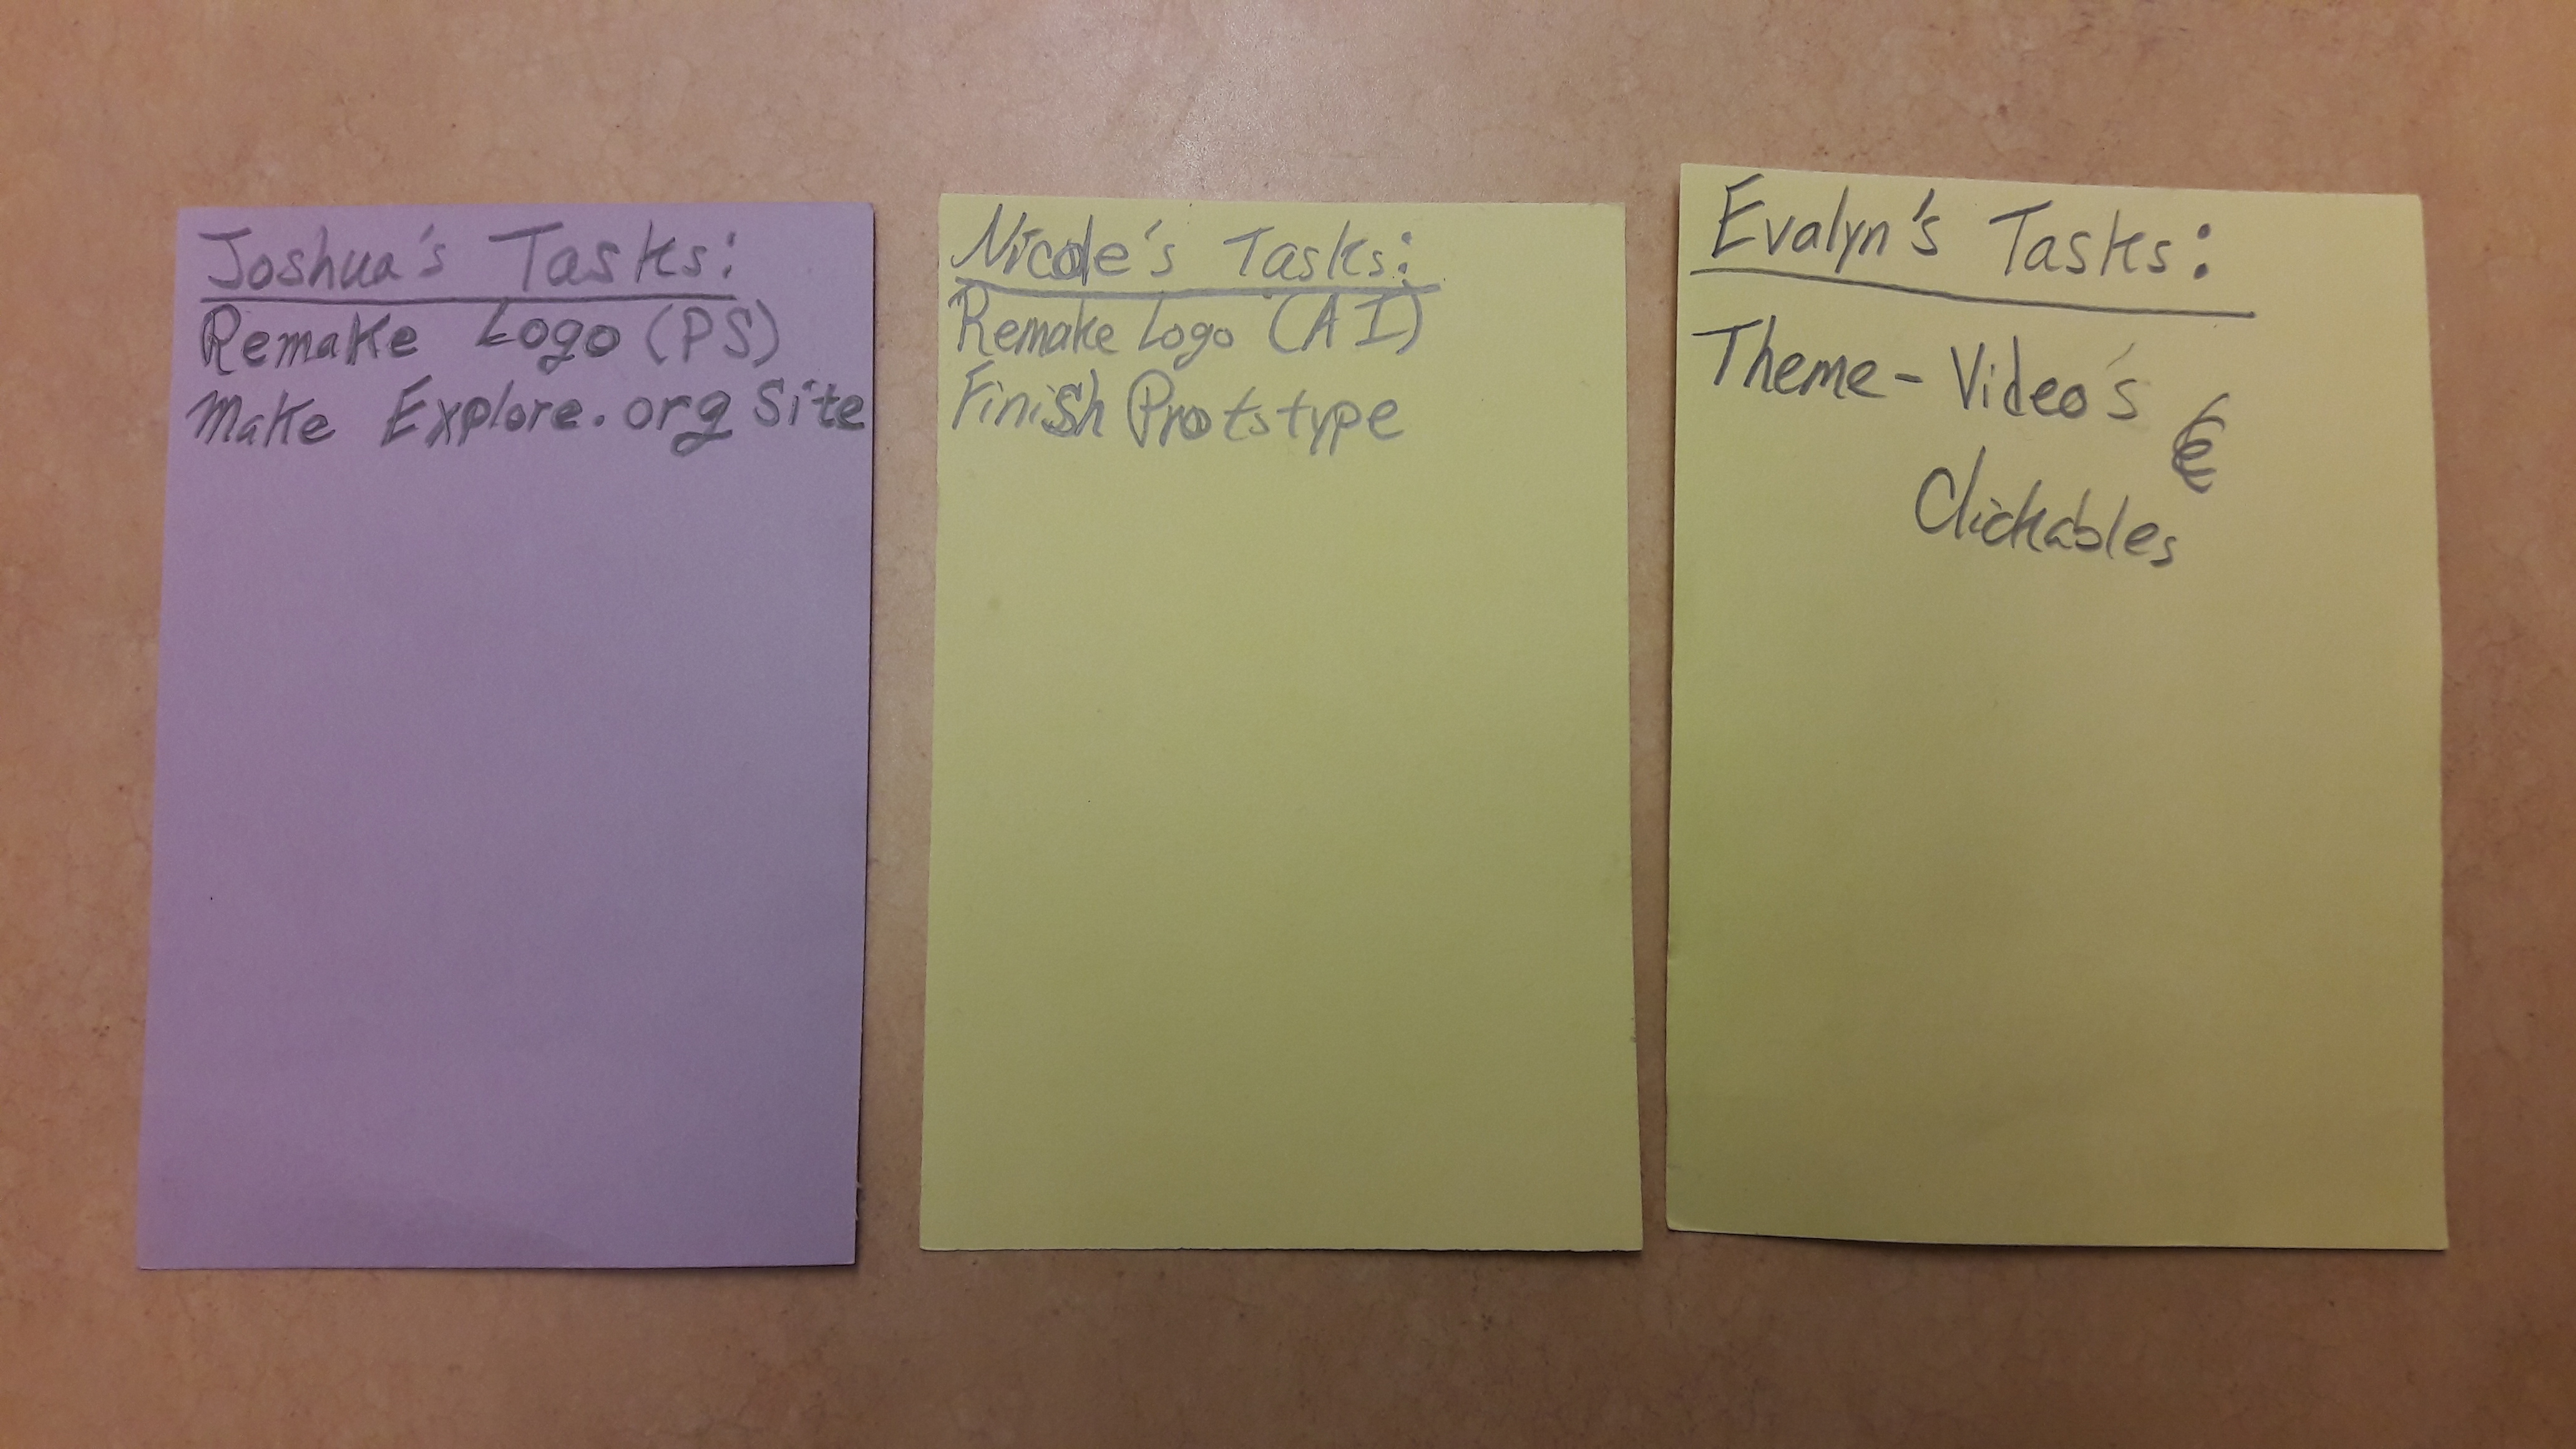 Joshua's Tasks:
Remake Logo (PS)
Make Explore.org site
Nicole's Tasks:
Remake Logo (AI)
Finish Prototype
Evalyn's Tasks:
Theme - Video's &
Clickables